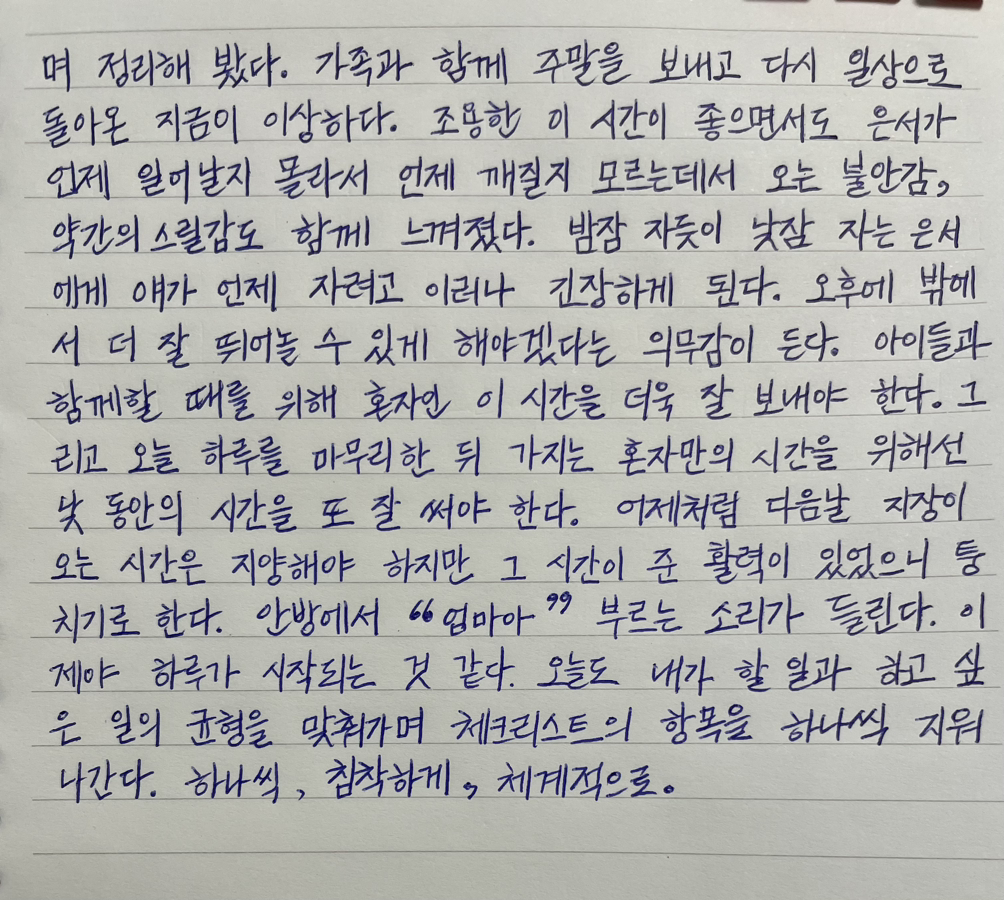 며 정리해 봤다. 가족과 함께 주말을 보내고 다시 일상으로
돌아온 지금이 이상하다. 조용한 이 시간이 좋으면서도 은서가
언제 일어날지 몰라서 언제 깨질지 모르는데서 오는 불안감,
약간의 스릴감도 함께 느껴졌다. 밤잠 자듯이 낮잠 자는 은서
에게 얘가 언제 자려고 이러나 긴장하게 된다. 오후에 밖에
서 더 잘 뛰어놀 수 있게 해야겠다는 의무감이 든다. 아이들과
함께할 때를 위해 혼자인 이 시간을 더욱 잘 보내야 한다. 그
리고 오늘 하루를 마무리한 뒤 가지는 혼자만의 시간을 위해선
낮 동안의 시간을 또 잘 써야 한다. 어제처럼 다음날 지장이
오는 시간은 지양해야 하지만 그 시간이 준 활력이 있었으니 퉁
치기로 한다. 안방에서 “엄마아” 부르는 소리가 들린다. 이
제야 하루가 시작되는 것 같다. 오늘도 내가 할 일과 하고 싶
은 일의 균형을 맞춰가며 체크리스트의 항목을 하나씩 지워
나간다. 하나씩, 침착하게, 체계적으로.